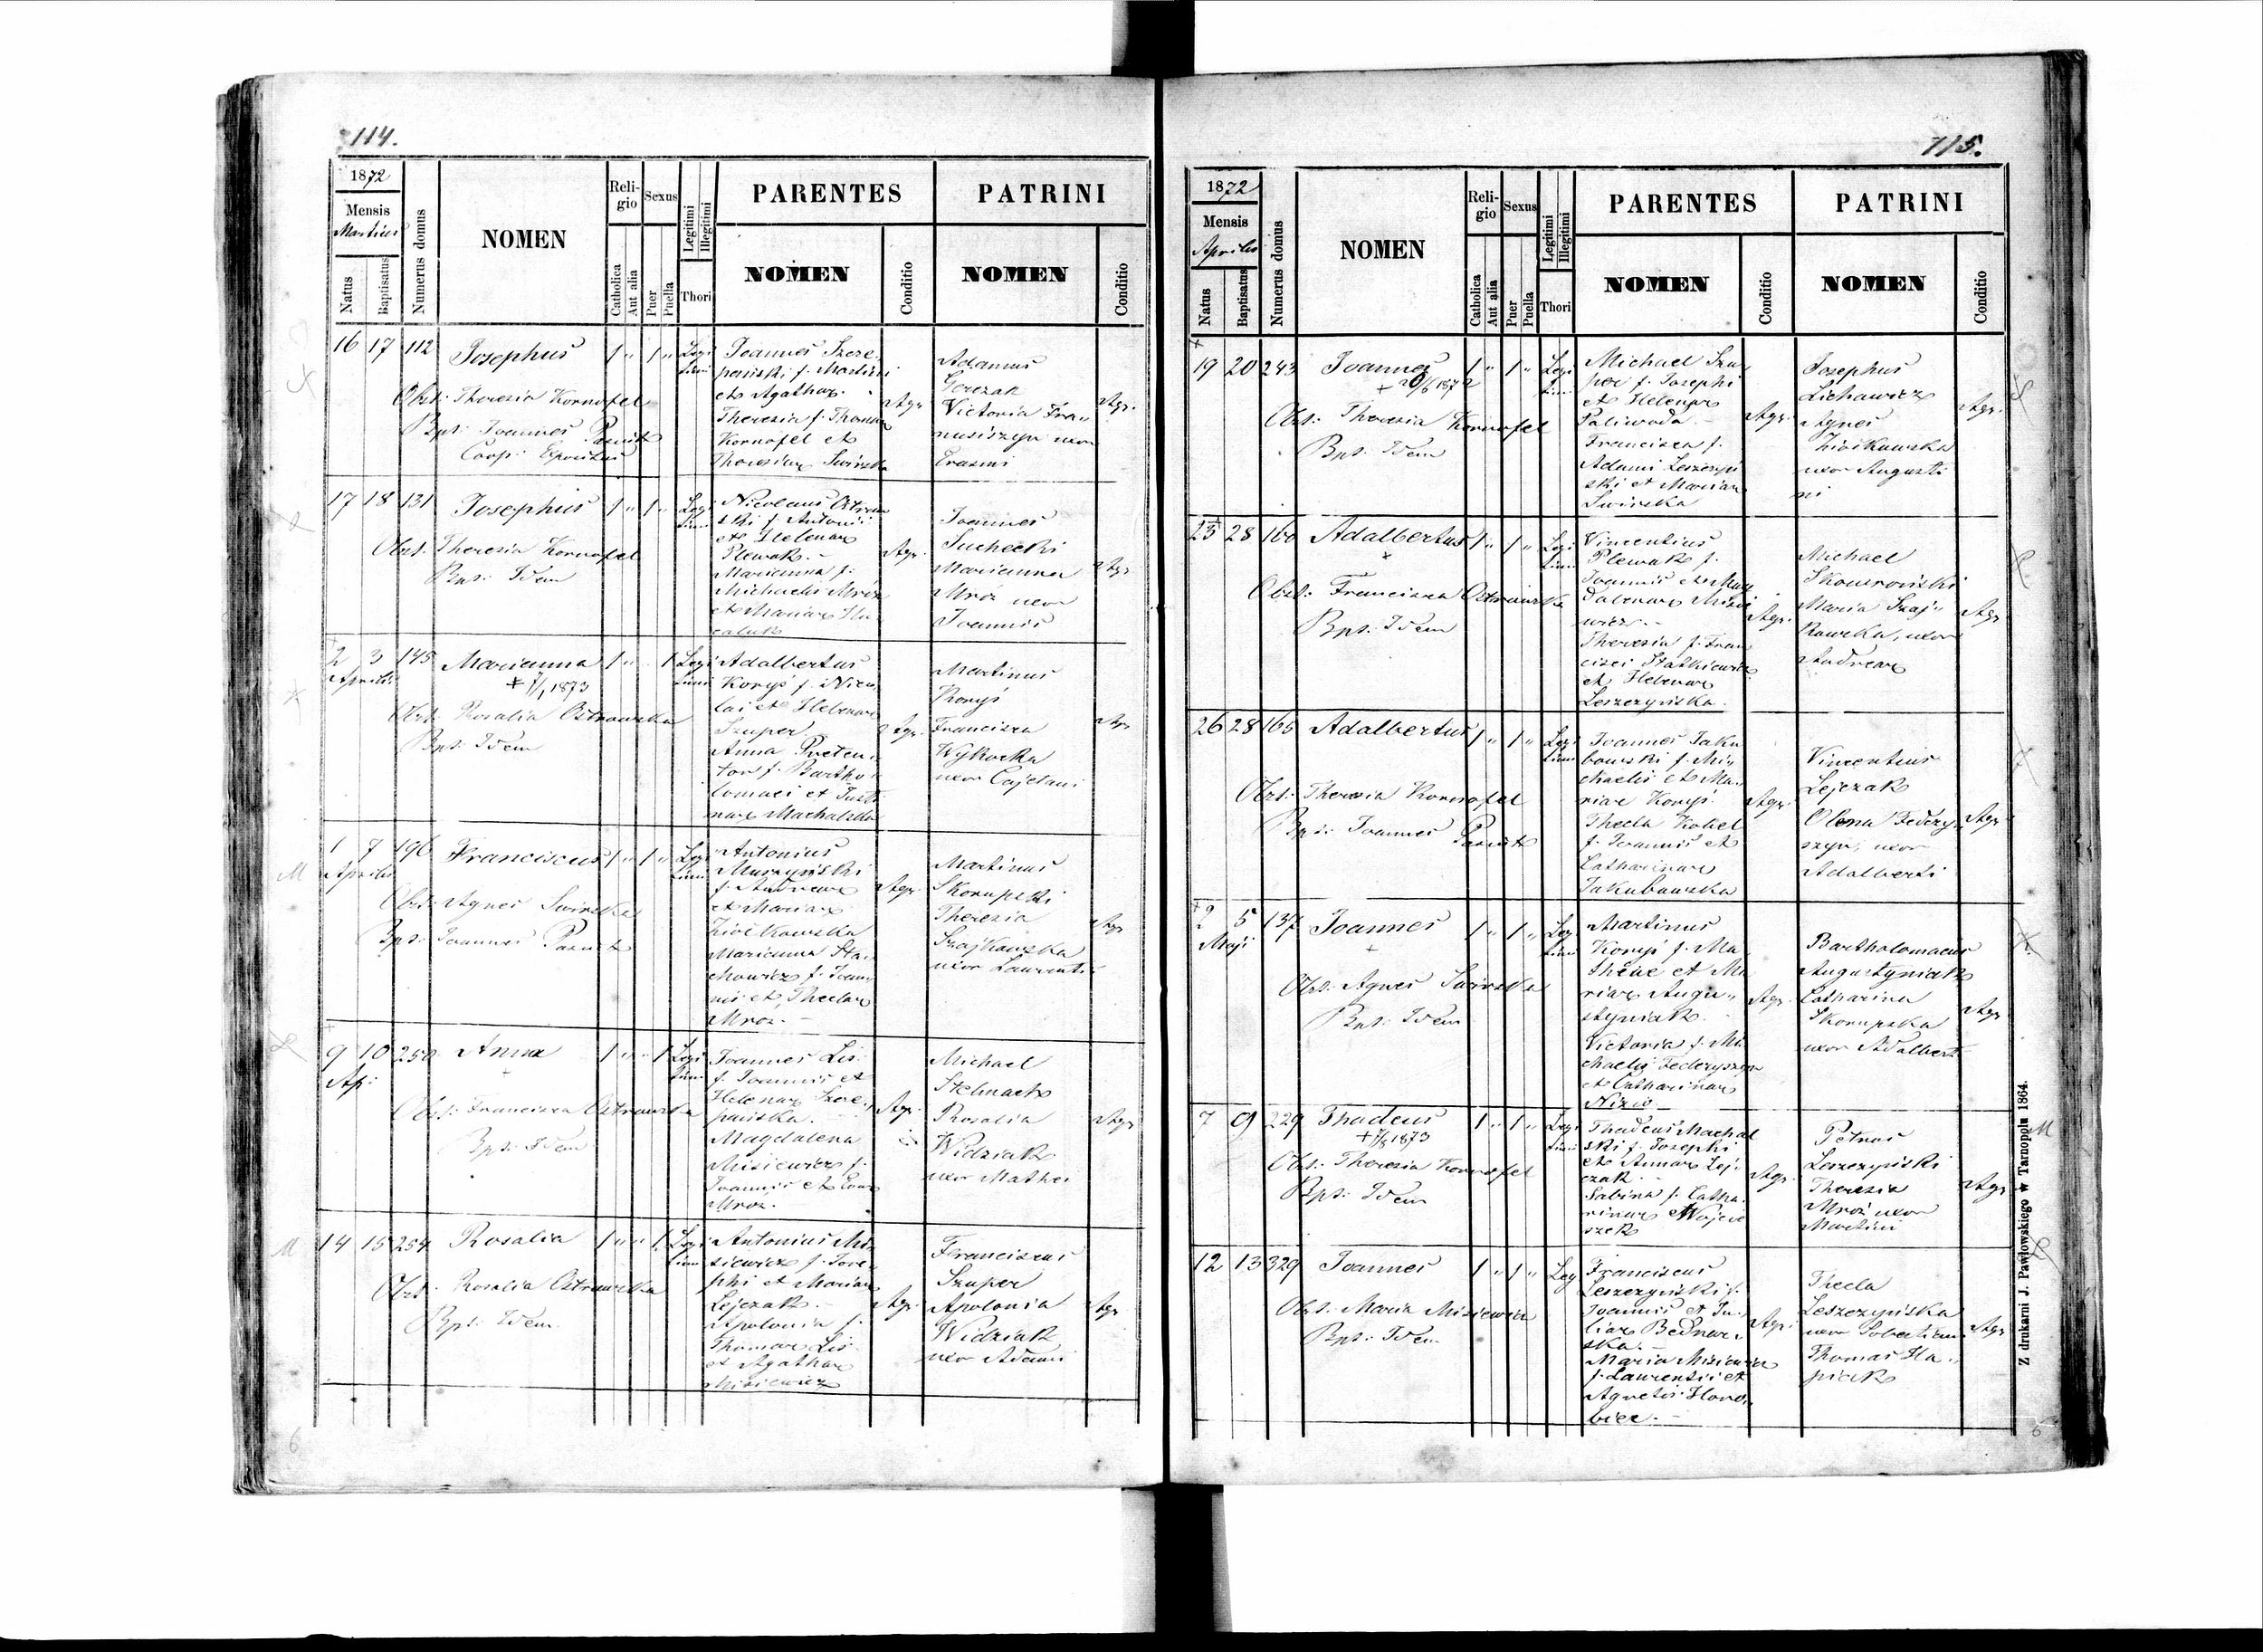 114.
1872
Mensis
Martius
Natus
Baptisatus
Numerus domus
NOMEN
Reli-
gio
Catholica
Aut alia
Sexus
Puer
Puella
Legitimi
Illegitimi
Thori
PARENTES
NOMEN
Conditio
PATRINI
NOMEN
Conditio
16 17 112 Josephus 1 " 1 " Legi
timi
Obst: Theresia Kornafel
Bpt: Joannes
Coop: Expositus
Joannes Szcze
pański f. Martini
et Agathae
Theresia f. Thomae
Kornafel et
Theresiae Swirska
Agr.
Adamus
Gerczak
Victoria
uxor
Erasmi
Agr.
17 18 131 Josephus 1 " 1 " Legi
timi
Obst: Theresia Kornafel
Bpt: Idem
Nicolaus Ostrow
ski f. Antonii
et Helenae
Plewak.
Marianna f.
Michaelis Mróz
et Mariae
Agr.
Joannes
Suchecki
Marianna
Mroz uxor
Joannis
Agr.
2 3 145 Marianna 1 " " 1 Legi
timi
Aprilis
1873
Obst: Rosalia Ostrowska
Bpt: Idem
Adalbertus
Koryś f. Nico
lai et Helenae
Szuper
Anna Preten
tor f. Bartho
lomaei et Justi
nae Machalska
Agr.
Martinus
Koryś
Francisca
Wykocka
uxor Cajetani
Agr.
1 7 196 Franciscus 1 " 1 " Legi
timi
Aprilis
Obst: Agnes Swirska
Bpt: Joannes
Antonius
Murzyński
f. Andreae
et Mariae
Ziółkowska
Marianna Sta
chowicz f. Joan
nis et Theclae
Mroz.
Agr.
Martinus
Skorupski
Theresia
Szajkowska
uxor Laurentii
Agr.
9 10 250 Anna 1 " " 1 Legi
timi
Ap:
Obst: Francisca Ostrowska
Bpt: Idem
Joannes Lis
f. Joannis et
Helenae Szcze
pańska.
Magdalena
Misiewicz f.
Joannis et Evae
Mroz.
Agr.
Michael
Stelmach
Rosalia
Widziak
uxor Mathei
Agr.
14 15 254 Rosalia 1 " " 1 Legi
timi
Obst: Rosalia Ostrowska
Bpt: Idem
Antonius Mi
siewicz f. Jose
phi et Mariae
Lejczak.
Apolonia f.
Thomae Lis
et Agathae
Misiewicz
Agr.
Franciscus
Szuper
Apolonia
Widziak
uxor Adami
Agr.
115.
1872
Mensis
Aprilis
Natus
Baptisatus
Numerus domus
NOMEN
Reli-
gio
Catholica
Aut alia
Sexus
Puer
Puella
Legitimi
Illegitimi
Thori
PARENTES
NOMEN
Conditio
PATRINI
NOMEN
Conditio
19 20 243 Joannes 1 " 1 " Legi
timi
Obst: Theresia Kornafel
Bpt: Idem
Michael Szu
per f. Josephi
et Helenae
Paliwoda.
Francisca f.
Adami Leszczyń
ski et Mariae
Swirska
Agr.
Josephus
Lichawicz
Agnes
Ziółkowska
uxor Augusti
ni
Agr.
25 28 160 Adalbertus 1 " 1 " Legi
timi
Obst: Francisca Ostrowska
Bpt: Idem
Vincentius
Plewak f.
Joannis et Mag
dalenae Misie
wicz.
Theresia f. Fran
cisci Statkiewicz
et Helenae
Leszczyńska.
Agr.
Michael
Skowroński
Maria Szaj"
kowska, uxor
Andreae
Agr.
26 28 165 Adalbertus 1 " 1 " Legi
timi
Obst: Theresia Kornafel
Bpt: Joannes
Joannes Jaku
bowski f. Mi"
chaelis et Ma"
riae Koryś.
Thecla Kokel
f. Joannis et
Catharinae
Jakubowska
Agr.
Vincentius
Lejczak
Olena Federy"
szyn, uxor
Adalberti
Agr.
2 5 137 Joannes 1 " 1 " Legi
timi
Maji
Obst: Agnes Swirska
Bpt: Idem
Martinus
Koryś f. Ma
theae et Ma
riae Augu"
styniak.
Victoria f. Mi
chaelis Federyszyn
et Catharinae
Nizio
Agr.
Bartholomaeus
Augustyniak
Catharina
Skorupska
uxor Adalberti
Agr.
7 9 229 Thadeus 1 " 1 " Legi
timi
1873
Obst: Theresia Kornafel
Bpt: Idem
Thadeus Machal
ski f. Josephi
et Annae Lej"
czak.
Sabina f. Catha
rinae Wojcie
szek
Agr.
Petrus
Leszczyński
Theresia
Mróz uxor
Martini
Agr.
12 13 329 Joannes 1 " 1 " Leg
Obst: Maria Misiewicz
Bpt: Idem
Franciscus
Leszczyński f.
Joannis et Ju"
liae Bednar"
ska.
Maria Misiewicz
f. Laurentii et
Agnetis Horo"
biec.
Agr.
Thecla
Leszczyńska
uxor Sebastiani
Thomas Ha"
piak
Agr.
Z drukarni J. Pawłowskiego w Tarnopolu 1864.